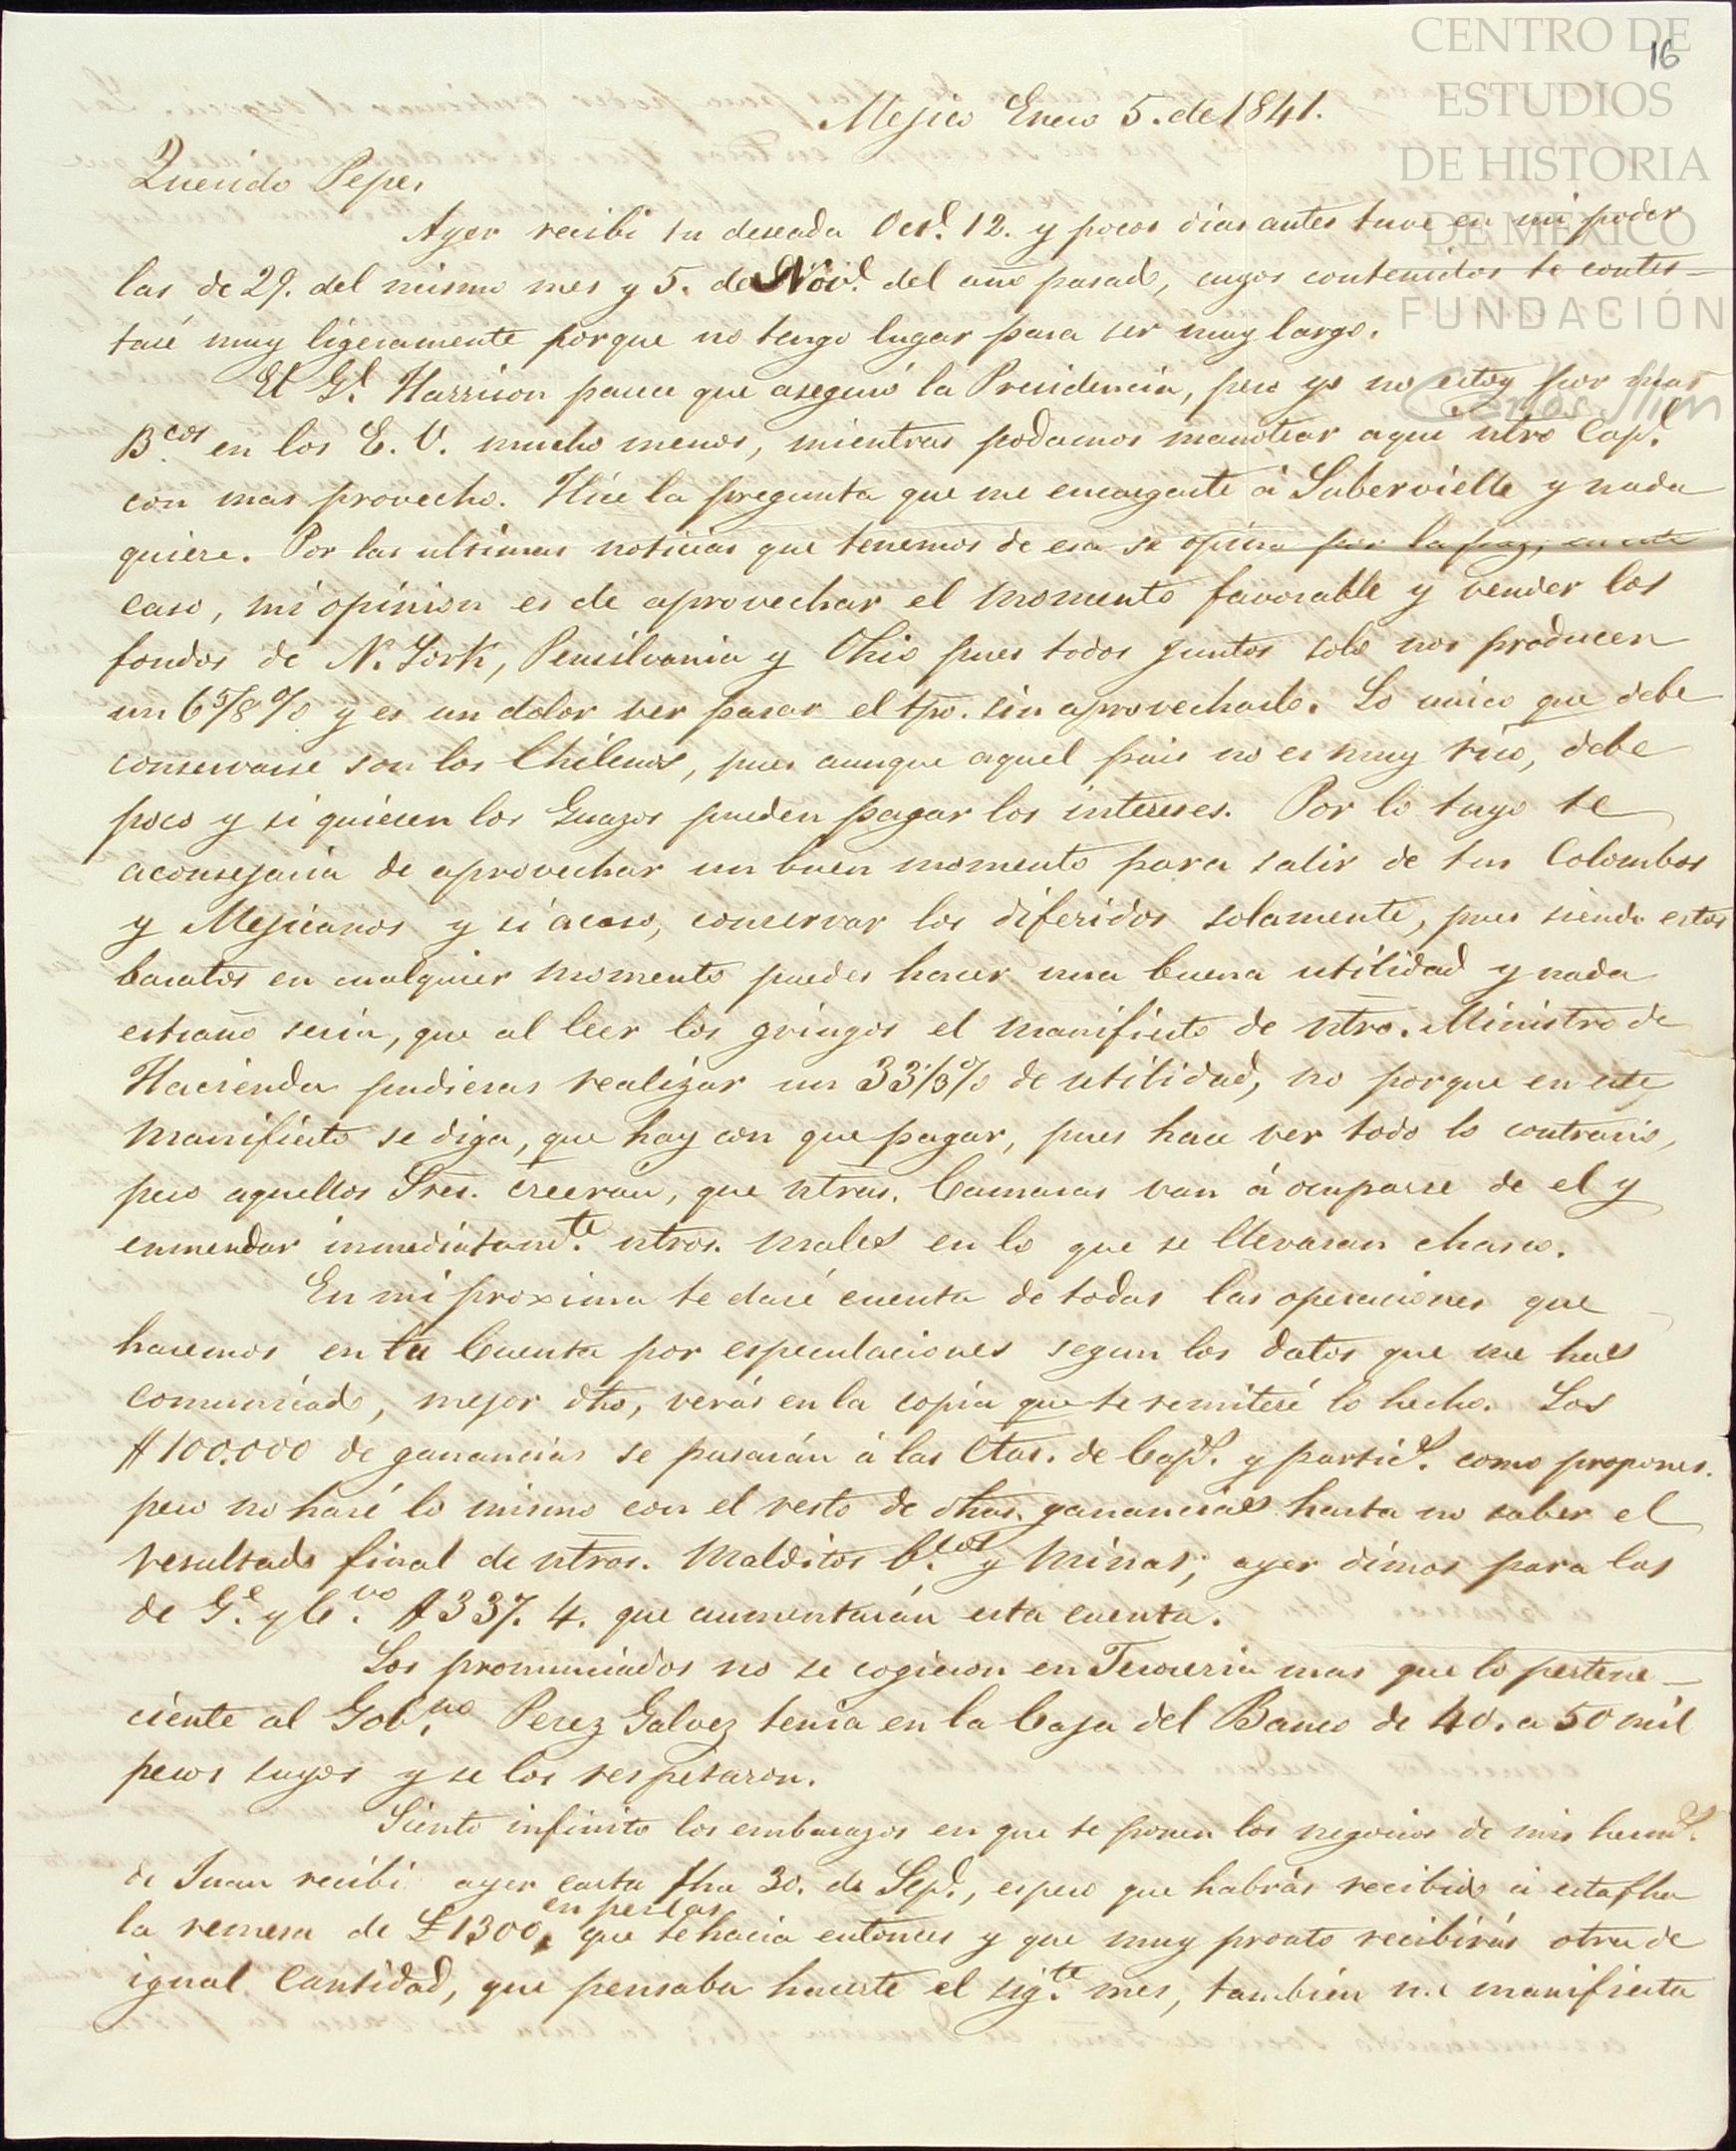 CENTRO DE
ESTUDIOS
DE HISTORIA
DE MÉXICO
FUNDACIÓN
Carlos Slim
16
Mejico Enero 5. de 1841.
Querido Pepe,
Ayer recibi tu deseada Oct.e 12. y pocos dias antes tuve en mi poder
las de 29. del mismo mes y 5. de Nov.e del año pasado, cuyos contenidos te contes-
taré muy ligeramente porque no tengo lugar para ser muy largo.
El G.l Harrison parece que aseguró la Presidencia, pero yo no estoy por mas
B.cos en los E. U. mucho menos, mientras podamos manotear aqui ntro Cap.l
con mas provecho. Hice la pregunta que me encargaste á Subervielle y nada
quiere. Por las ultimas noticias que tenemos de esa se opina por la paz, en este
caso, mi opinion es de aprovechar el momento favorable y vender los
fondos de N. York, Pensilvania y Ohio pues todos juntos solo nos producen
un 6 5/8 % y es un dolor ver pasar el tpo. sin aprovecharlo. Lo unico que debe
conservarse son los Chilenos, pues aunque aquel pais no es muy rico, debe
poco y si quieren los Guazos pueden pagar los intereses. Por lo tuyo te
aconsejaria de aprovechar un buen momento para salir de tus Colombos
y Mejicanos y si acaso, conservar los diferidos solamente, pues siendo estos
baratos en cualquier momento puedes hacer una buena utilidad y nada
estraño seria, que al leer los gringos el manifiesto de ntro. Ministro de
Hacienda pudieras realizar un 33 1/3 % de utilidad, no porque en este
manifiesto se diga, que hay con que pagar, pues hace ver todo lo contrario,
pero aquellos Sres. creerán, que ntras. Camaras van á ocuparse de el y
enmendar inmediatam.te ntros. males en lo que se llevaran chasco.
En mi proxima te daré cuenta de todas las operaciones que
haremos en tu Cuenta por especulaciones segun los datos que me has
comunicado, mejor dho, verás en la copia que te remiteré lo hecho. Los
$ 100.000 de ganancias se pasarán á las Ctas. de Cap.l y partic.r como propones.
pero no haré lo mismo con el resto de dhas. ganancias hasta no saber el
resultado final de ntros. malditos C.cos y minas, ayer dimos para las
de G.e y C.vo $ 337. 4. que aumentarán esta cuenta.
Los pronunciados no se cogieron en Tesoreria mas que lo pertene-
ciente al Gob.no Perez Galvez tenia en la Caja del Banco de 40. a 50 mil
pesos suyos y se los respetaron.
Siento infinito los embarazos en que te ponen los negocios de mis herm.s
de Juan recibi ayer carta fha 30. de Sep.e, espero que habrás recibido á esta fha
la remesa de £ 1300, en perlas que te hacia entonces y que muy pronto recibirás otra de
igual Cantidad, que pensaba hacerte el sig.te mes, tambien me manifiesta